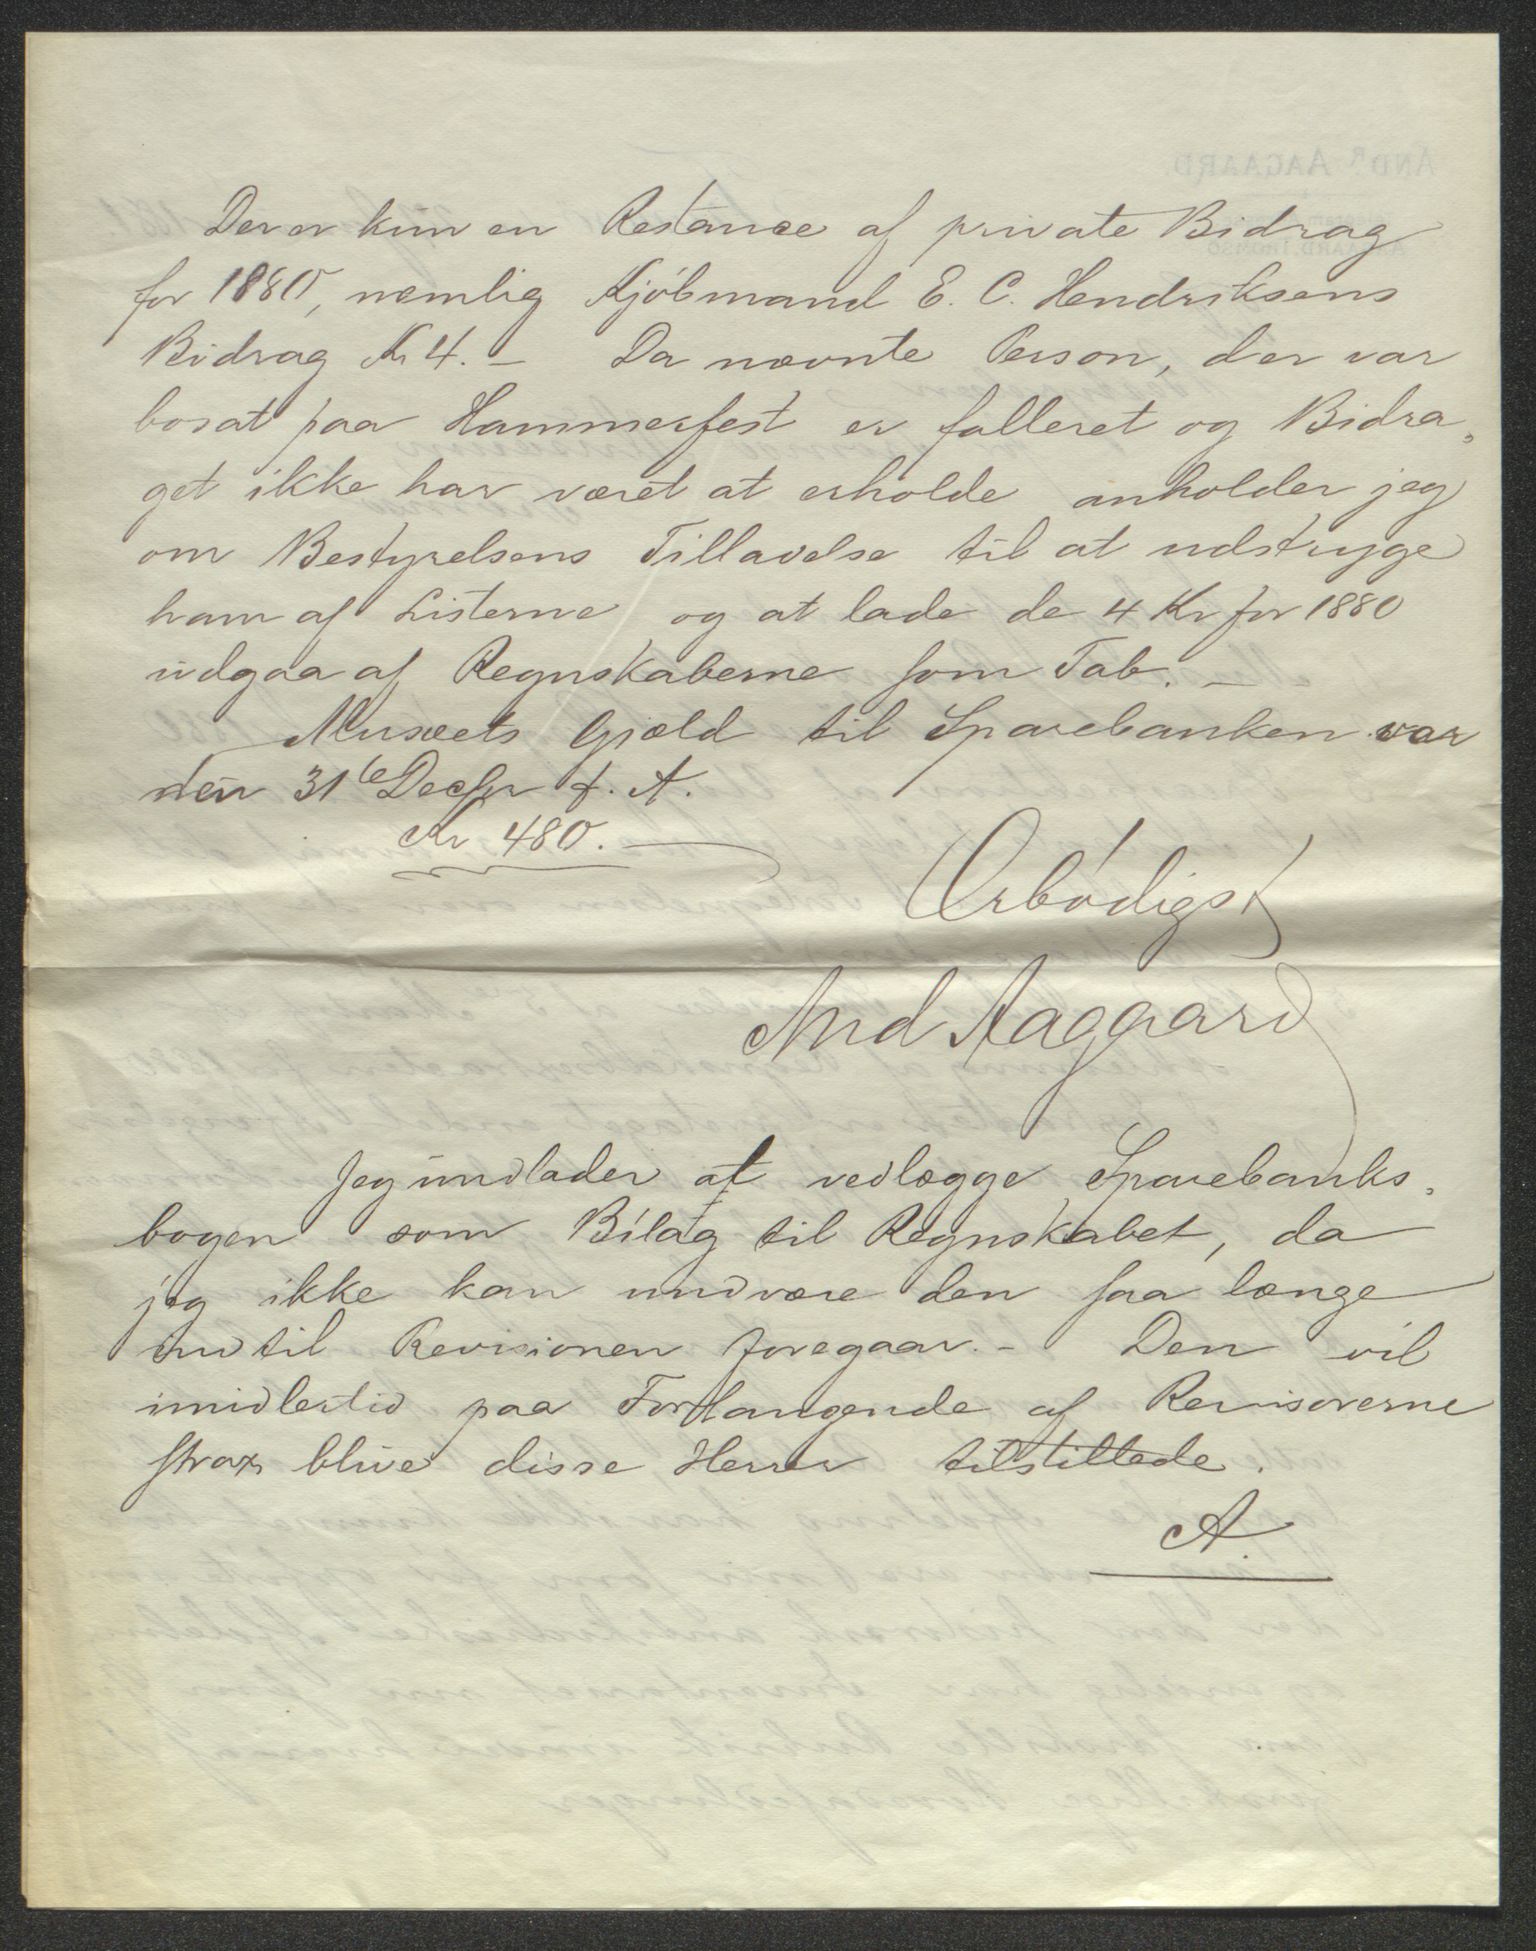 Der er kun en Restance af private Bidrag
for 1880, nemlig Kjöbmand E. C. Hendriksens
Bidrag Kr 4. – Da nævnte Person, der var
bosat paa Hammerfest er falleret og Bidra-
get ikke har været at erholde anholder jeg
om Bestyrelsens Tilladelse til at udstryge
ham af Listerne og at lade de 4 Kr for 1880
udgaa af Regnskaberne som Tab. –
Musæets Gjæld til Sparebanken var
den 31te Decbr f. A.
Kr 480. –
Ærbödigst
And Aagaard
Jeg undlader at vedlægge Sparebanks-
bogen som Bilag til Regnskabet, da
jeg ikke kan undvære den saa længe
indtil Revisionen foregaar. – Den vil
imidlertid paa Forlangende af Revisorerne
strax blive disse Herrer tilstillede.
A.